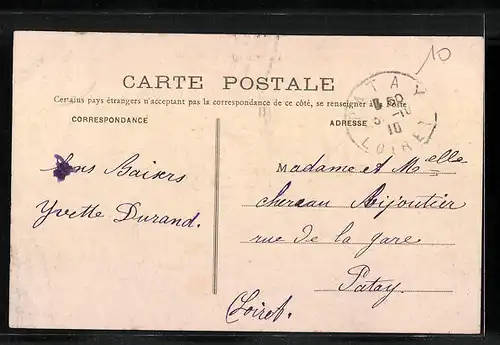 10
CARTE POSTALE
Certains pays étrangers n'acceptant pas la correspondance de ce côté, se renseigner à la Poste
CORRESPONDANCE
ADRESSE
PATAY
10
LOIRET
Bons Baisers
Yvette Durand.
Madame et Melle
chereau Bijoutier
rue de la gare
Patay
(Loiret.